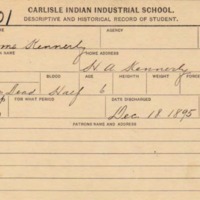 CARLISLE INDIAN INDUSTRIAL SCHOOL.
DESCRIPTIVE AND HISTORICAL RECORD OF STUDENT.
01
AGENCY
Kennerly
HOME ADDRESS
H A Kennerly
BLOOD AGE HEIGHTH WEIGHT FORCED
Dead Half 6
FOR WHAT PERIOD DATE DISCHARGED
Dec 18 1895
PATRONS NAME AND ADDRESS